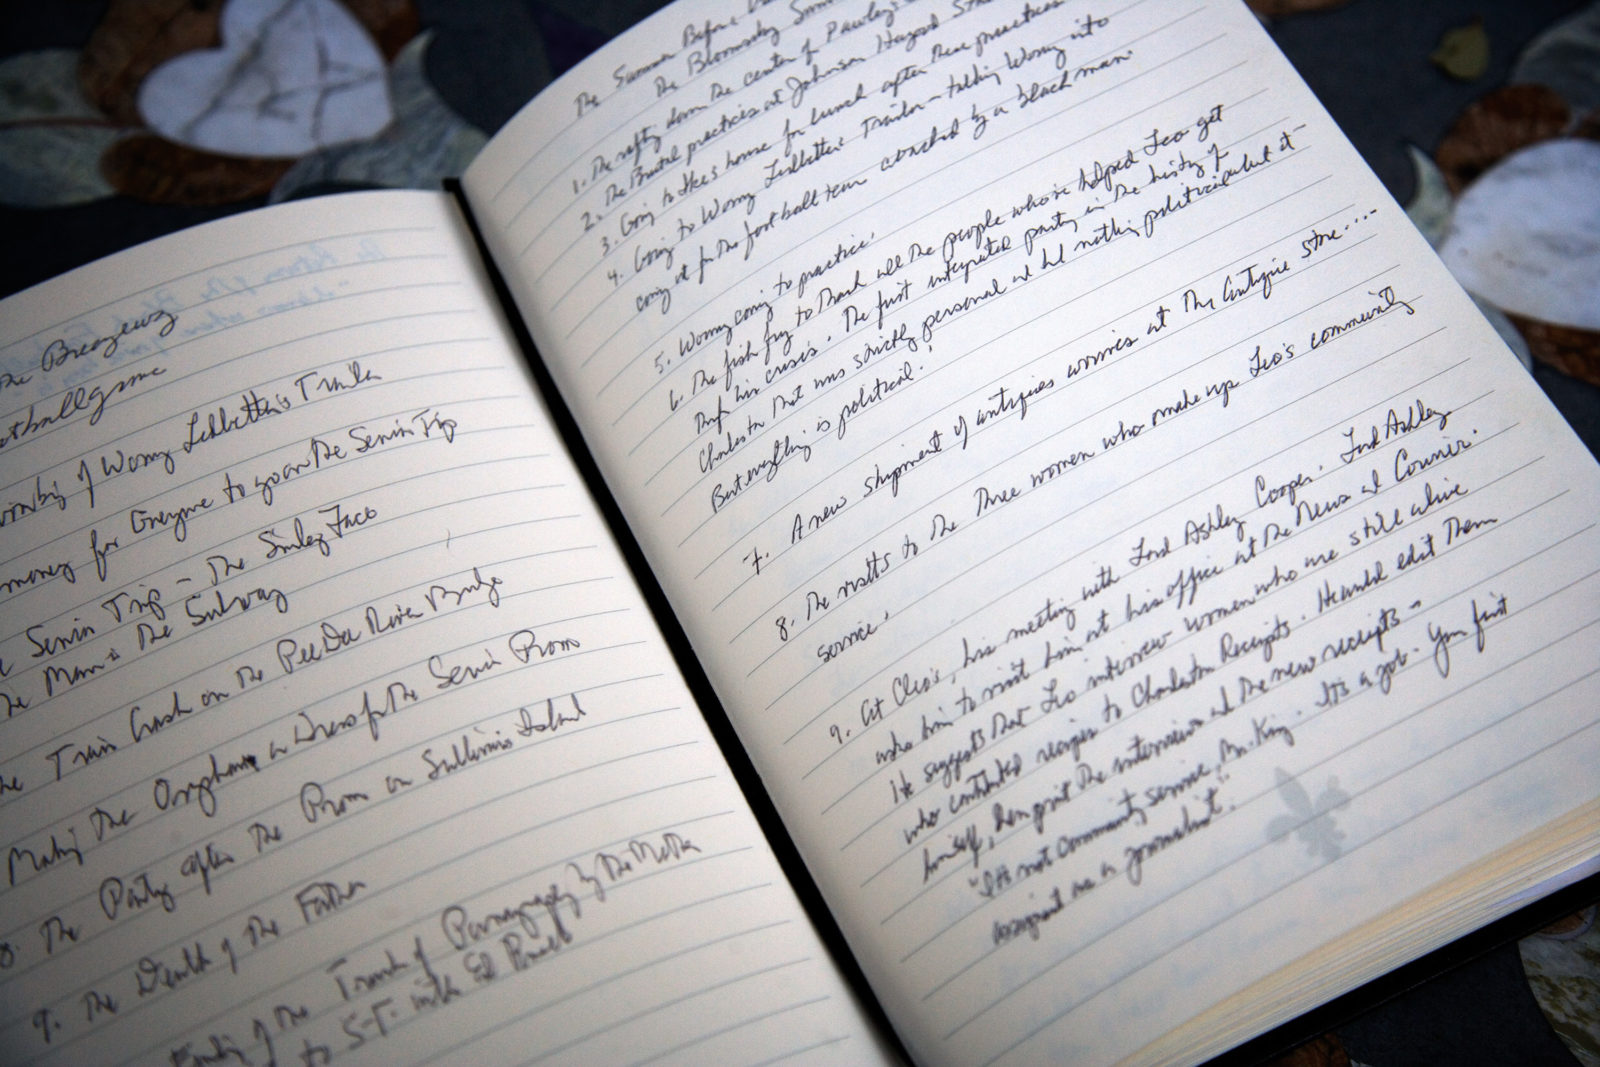 The Breezeway
football game
of Wormy Ledbetter's Trailer
money for Everyone to go on the Senior Trip
Senior Trip - The Smiley Face
The Man in the Subway
The Train Crash on the PeeDee River Bridge
Making the Orphans a Dress for the Senior Prom
8. The Party after the Prom on Sullivan's Island
9. The Death of the Father
Finding of the Trunk of Pornography by the Mother
to S.F. with
The Summer Before
The Bloomsday Summer
1. The rafting down the center of Pawley's
2. The Brutal practices at Johnson Hagood
3. Going to Ike's house for lunch after these practices
4. Going to Wormy Ledbetter's Trailer - talking Wormy into
coming out for the football team coached by a black man.
5. Wormy coming to practice.
6. The fish fry to thank all the people who've helped Leo get
through his crisis. The first integrated party in the history of
Charleston that was strictly personal and had nothing political about it -
But everything is political!
7. A new shipment of antiques arrives at the antique store....
8. The visits to the three women who make up Leo's community
service.
9. At Cleo's, his meeting with Lord Ashley Cooper. Lord Ashley
asks him to visit him at his office at the News and Courier.
He suggests that Leo interview women who are still alive
who contributed recipes to Charleston Receipts. He would edit them
himself, then print the interviews and the new receipts -
"It's not community service, Mr. King. It's a job. Your first
assignment as a journalist."